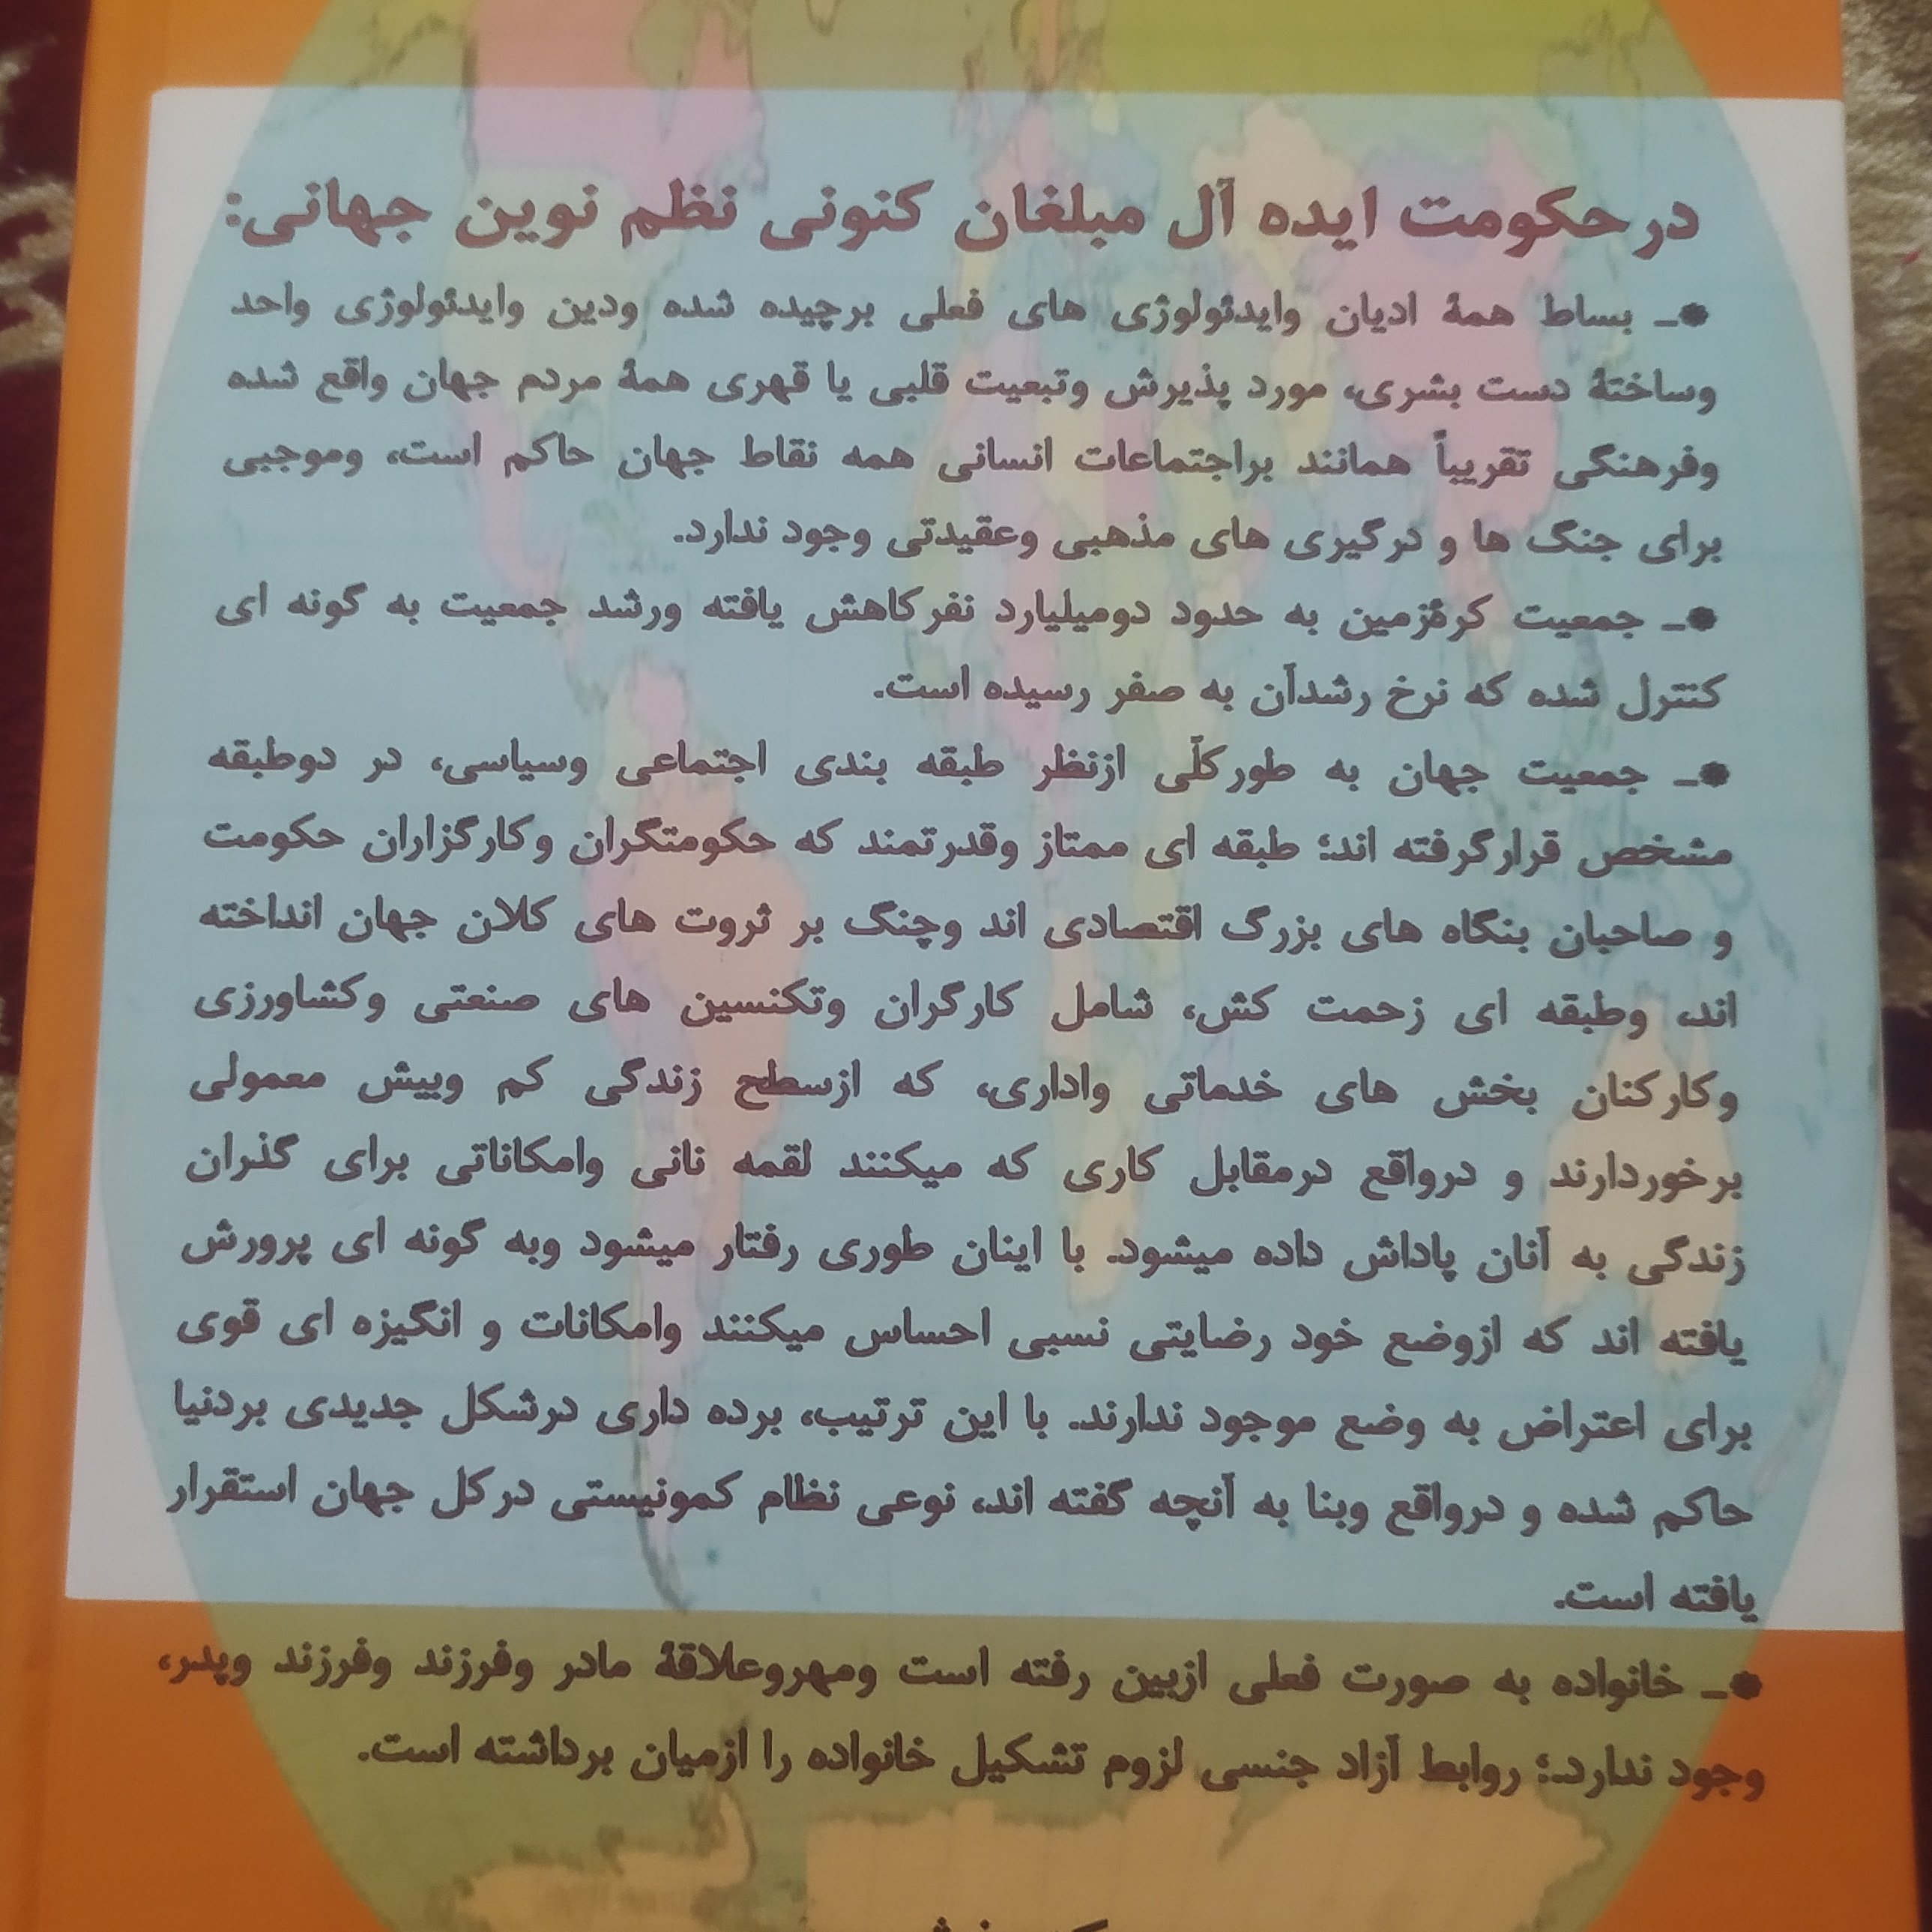 در حکومت ایده آل مبلغان کنونی نظم نوین جهانی:
*ـ بساط همهٔ ادیان وایدئولوژی های فعلی برچیده شده ودین وایدئولوژی واحد
وساختهٔ دست بشری، مورد پذیرش وتبعیت قلبی یا قهری همهٔ مردم جهان واقع شده
وفرهنگی تقریباً همانند براجتماعات انسانی همه نقاط جهان حاکم است، وموجبی
برای جنگ ها و درگیری های مذهبی وعقیدتی وجود ندارد.
*ـ جمعیت کرهٔزمین به حدود دومیلیارد نفرکاهش یافته ورشد جمعیت به گونه ای
کنترل شده که نرخ رشدآن به صفر رسیده است.
*ـ جمعیت جهان به طورکلّی ازنظر طبقه بندی اجتماعی وسیاسی، در دوطبقه
مشخص قرارگرفته اند؛ طبقه ای ممتاز وقدرتمند که حکومتگران وکارگزاران حکومت
و صاحبان بنگاه های بزرگ اقتصادی اند وچنگ بر ثروت های کلان جهان انداخته
اند، وطبقه ای زحمت کش، شامل کارگران وتکنسین های صنعتی وکشاورزی
وکارکنان بخش های خدماتی واداری، که ازسطح زندگی کم وبیش معمولی
برخوردارند و درواقع درمقابل کاری که میکنند لقمه نانی وامکاناتی برای گذران
زندگی به آنان پاداش داده میشود. با اینان طوری رفتار میشود وبه گونه ای پرورش
یافته اند که ازوضع خود رضایتی نسبی احساس میکنند وامکانات و انگیزه ای قوی
برای اعتراض به وضع موجود ندارند. با این ترتیب، برده داری درشکل جدیدی بردنیا
حاکم شده و درواقع وبنا به آنچه گفته اند، نوعی نظام کمونیستی درکل جهان استقرار
یافته است.
*ـ خانواده به صورت فعلی ازبین رفته است ومهروعلاقهٔ مادر وفرزند وفرزند وپدر،
وجود ندارد.؛ روابط آزاد جنسی لزوم تشکیل خانواده را ازمیان برداشته است.